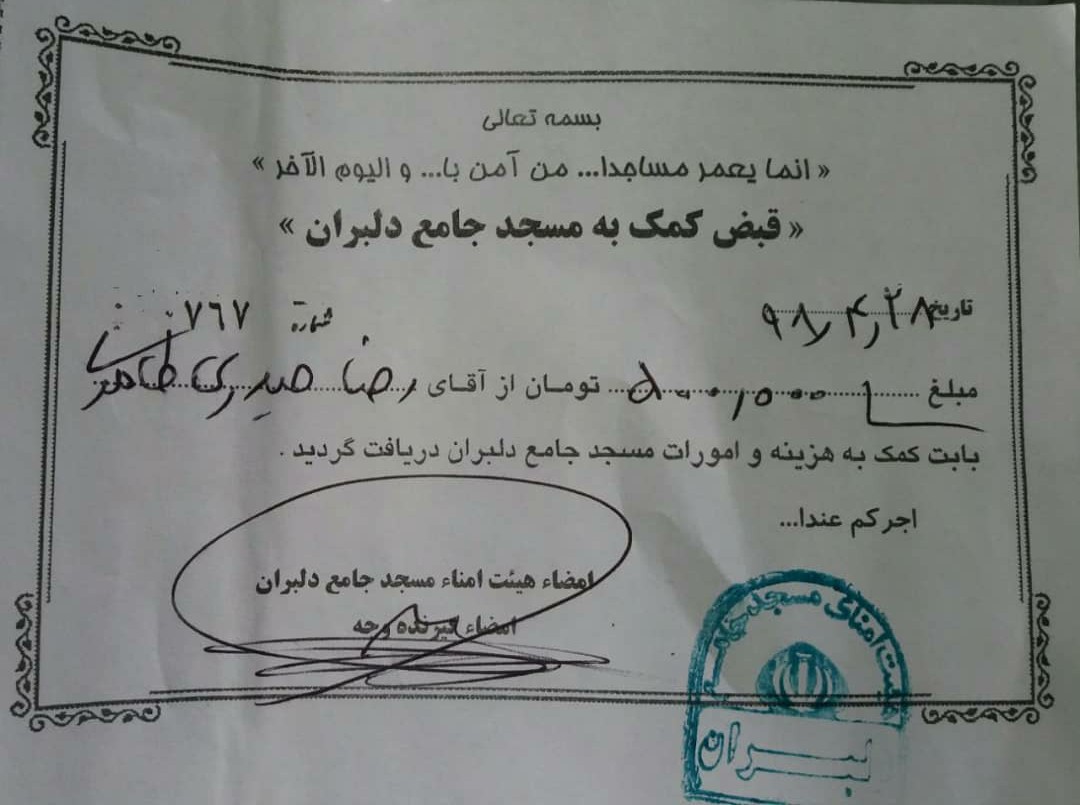 بسمه تعالی
« انما یعمر مساجدا... من آمن با... و الیوم الآخر »
« قبض کمک به مسجد جامع دلبران »
تاریخ ۹۸٫۴٫۲۸ شماره ۷۶۷
مبلغ ۵۰۰٫۰۰۰ تومان از آقای رضا حیدری
بابت کمک به هزینه و امورات مسجد جامع دلبران دریافت گردید .
اجرکم عندا...
امضاء هیئت امناء مسجد جامع دلبران
امضاء گیرنده وجه
هیئت امنای مسجد جامع
دلبران